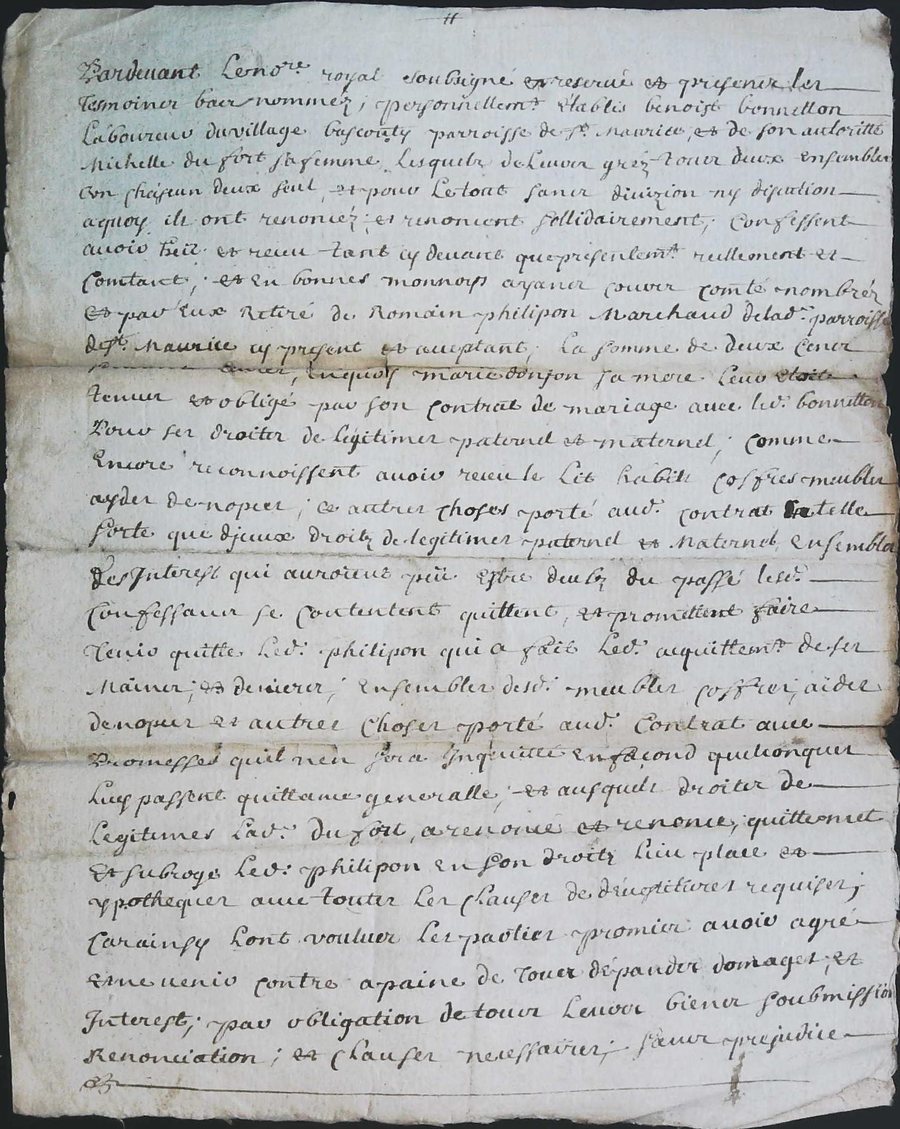 Pardevant Le nore royal soubsigné et reservé et presence les
tesmoines bas nommez, personnellemt établis benoist bonnillon
Laboureur du village bascouty parroisse de st Maurice, et de son autoritté
Michelle du fort sa femme, Lesquels de Leurs grez tous deux ensembles
Lon chascun deux seul, et pour Le tout sancs divizion ny discution
aquoy ils ont renoncéz; et renoncent sollidairement; Confessent
avoir heu et receu tant cy devant que presentemt reellement et
Comtant; et en bonnes monnoys ayanct cours comté nombréz
et par Eux Retiré de Romain philipon Marchand de lad. parroisse
de st Maurice cy present et aceptant; La somme de deux Cenct
enquoy marie donjon sa mere Leur etoit
tenue et obligé par son contrat de mariage avec led. bonnillon
Pour ses droites de légitimes paternel et maternel; comme
Encore reconnoissent avoir receu le Lit habits coffres meubles
aydes de nopces; et autres choses porté aud. contrat telle
sorte que diceux droitz de legitimes paternel et Maternel, ensembles
des Interest qui auroient peü estre deubz du passé lesd.
Confessants se contentent quittent, et promettent faire
tenir quitte Led. philipon qui a fait Led. acquittemt de ses
Maines; et denieres; Ensembles desd. meubles coffres; aides
de nopces et autres choses porté aud. Contrat avec
Promesses quil nen sera Inquietté en facond quelconques
Luy passent quittance generalle; et ausquels droites de
Legitimes Lad. Du fort, a renoncé et renonce, quitte met
et subroge Led. philipon en son droitz lieu place et
ypotheques avec toutes Les Clauses de dévestitures requises;
Car ainsy Lont voulues Les parties promier avoir agré
et ne venir contre a paine de tous dépandz domages, et
Interest; par obligation de tous Leurs bienes soubmission
Renonciation; et clauses necessaires; sancs prejudice